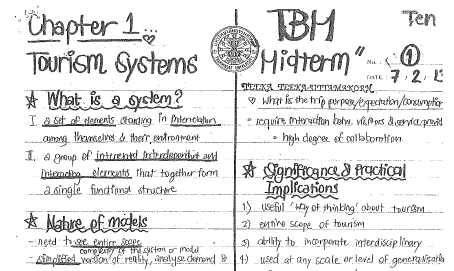 Chapter 1...
Tourism Systems
☆ What is a system?
I. a set of elements standing in interrelation
among themselves & their environment
II. a group of interrelated, interdependent and
interacting elements that together form
a single functional structure
☆ Nature of models
- need to see entire scope
complexity of the system or model
simplified version of reality, analyse demand &
TBM
Midterm"
Ten
No. 1
DATE 7, 2, 13
TEEKA TEEKAUTTAMAKORN
♡ What is the trip purpose/expectation/consumption
• require interaction betw. visitors & service provid
• high degree of collaboration
☆ Significance & Practical
Implications
1) useful 'way of thinking' about tourism
2) entire scope of tourism
3) ability to incorporate interdisciplinary
4) used at any scale or level of generalisation